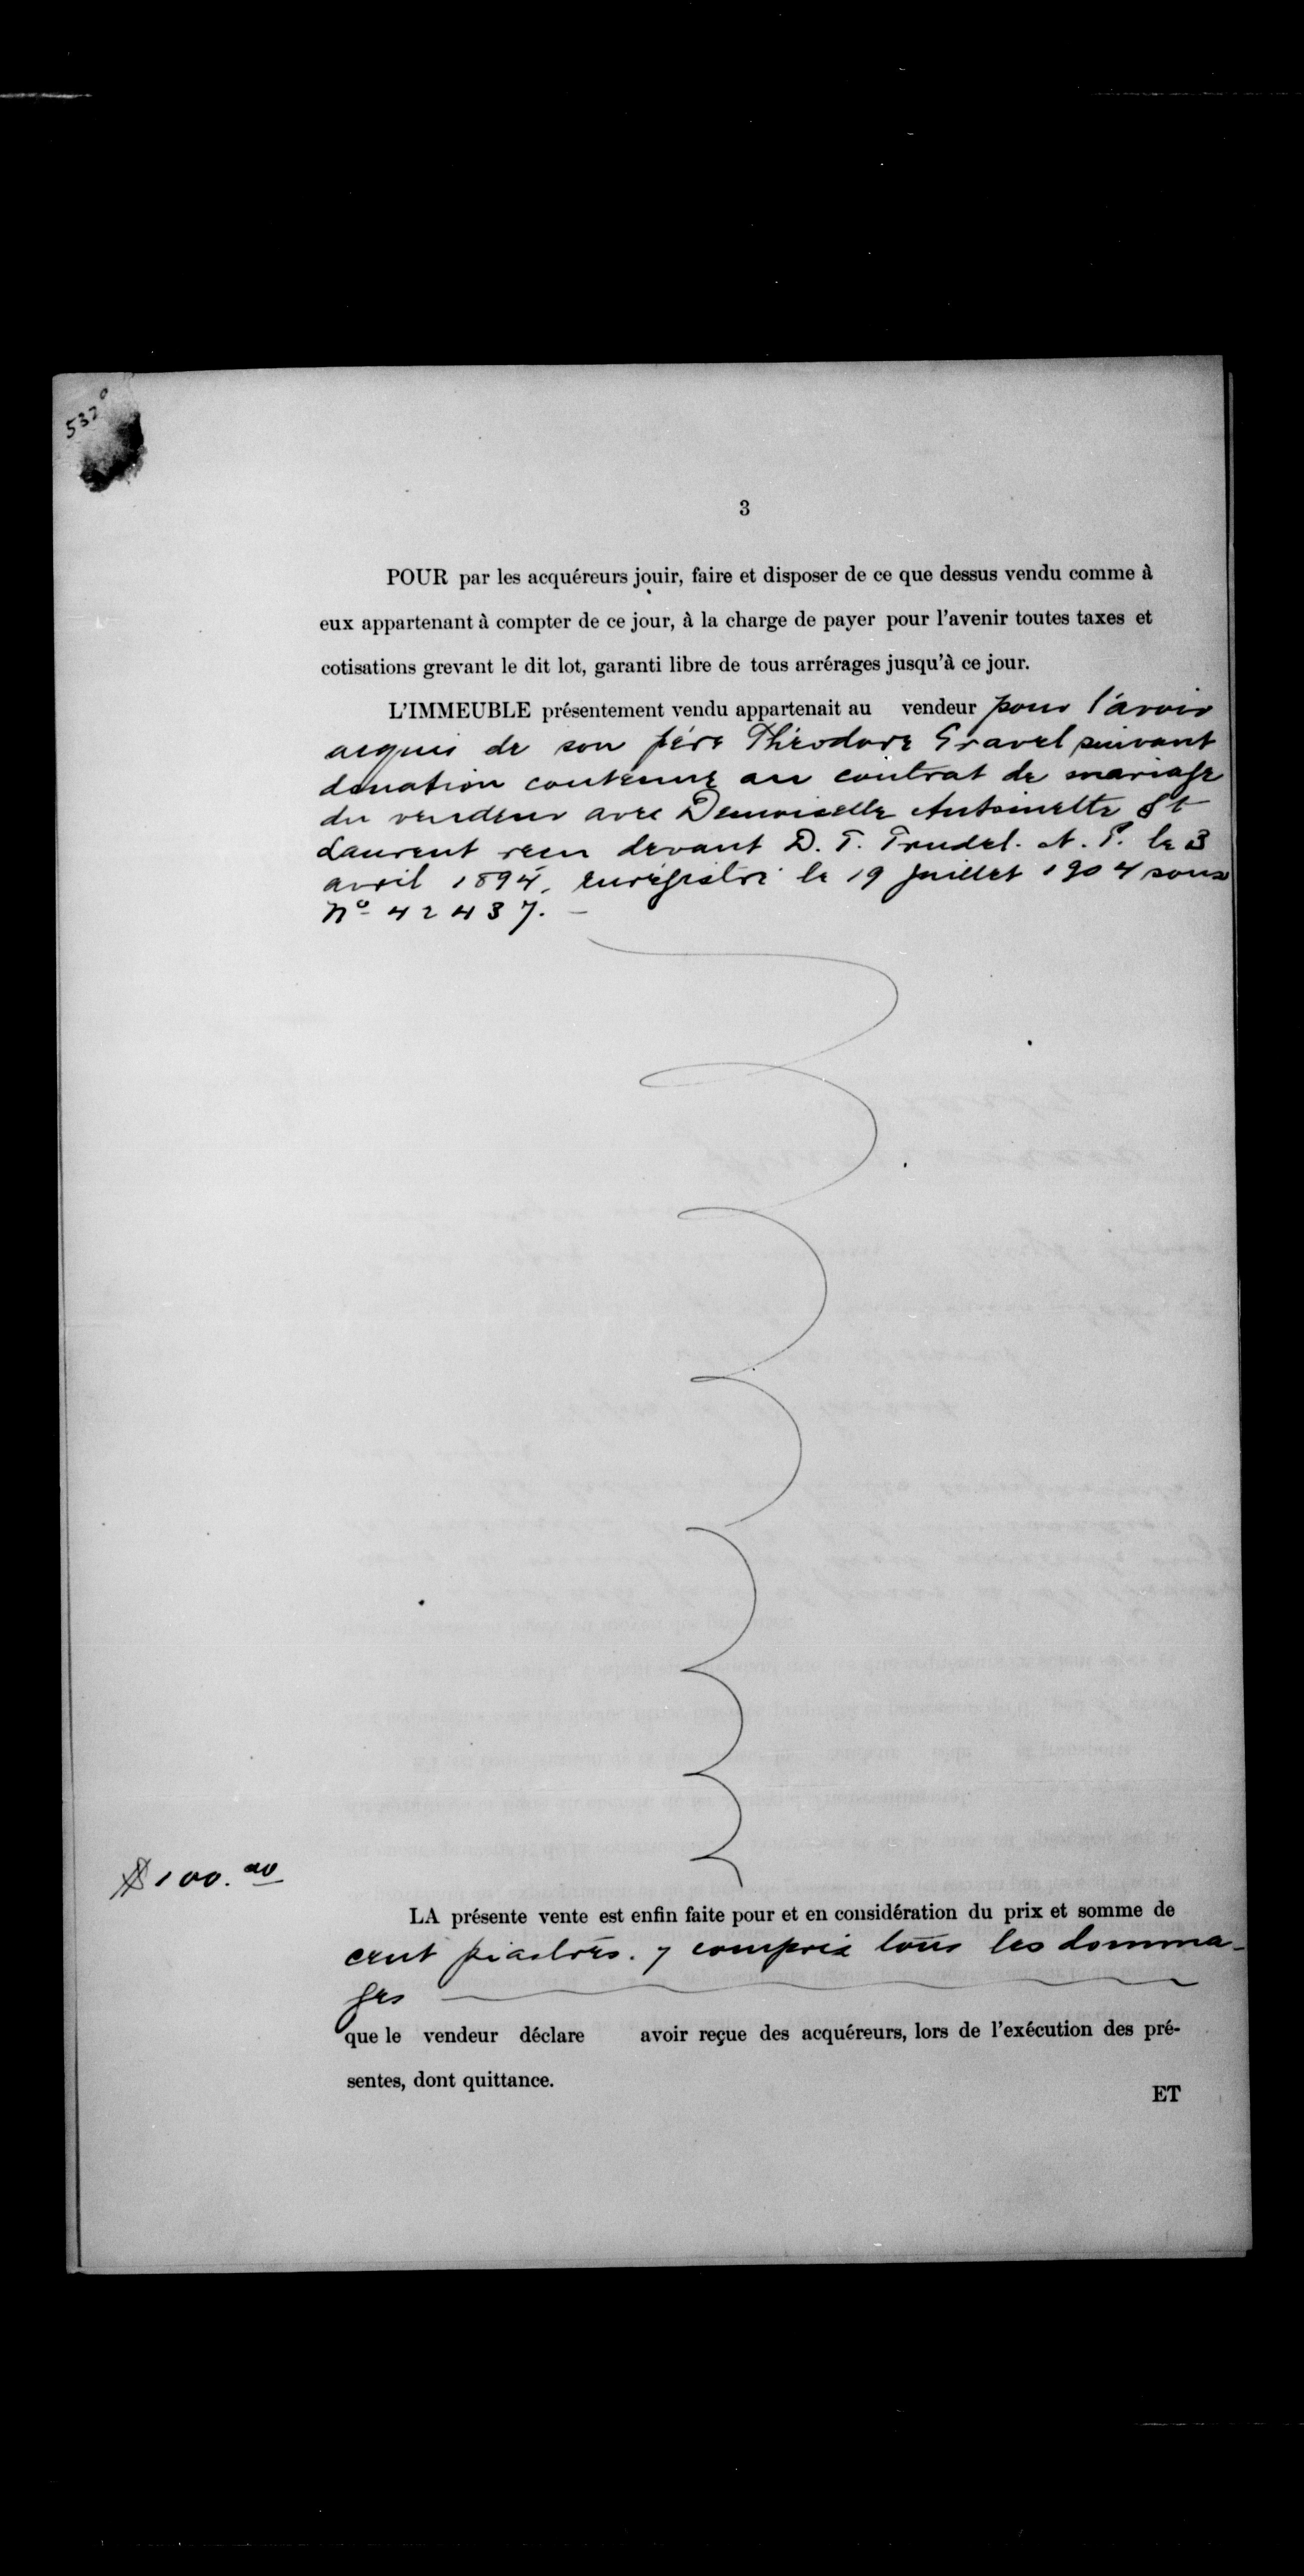 532⁰
3
POUR par les acquéreurs jouir, faire et disposer de ce que dessus vendu comme à
eux appartenant à compter de ce jour, à la charge de payer pour l'avenir toutes taxes et
cotisations grevant le dit lot, garanti libre de tous arrérages jusqu'à ce jour.
L'IMMEUBLE présentement vendu appartenait au vendeur pour l'avoir
acquis de son père Théodore Gravel suivant
donation contenue au contrat de mariage
du vendeur avec Demoiselle Antoinette St
Laurent reçu devant D. T. Trudel. N. P. le 3
avril 1894, enrégistré le 19 juillet 1904 sous
No 42437. —
$100.00
LA présente vente est enfin faite pour et en considération du prix et somme de
cent piastres. y compris tous les domma-
ges
que le vendeur déclare avoir reçue des acquéreurs, lors de l'exécution des pré-
sentes, dont quittance.
ET